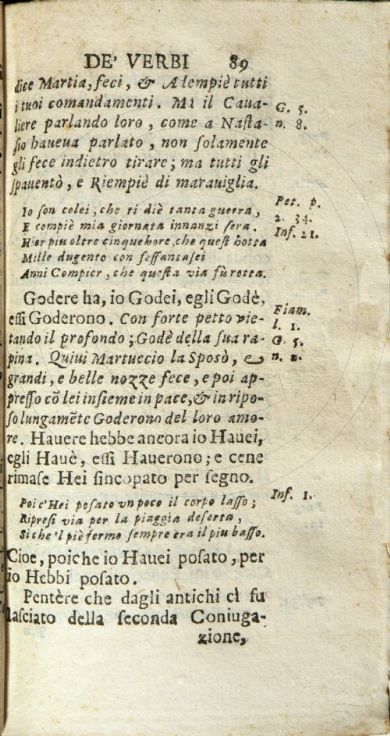 DE' VERBI 89
dice Martia, feci, & Alempiè tutti
i tuoi comandamenti. Mà il Caua-
liere parlando loro, come a Nasta- G. 5.
sio haueua parlato, non solamente n. 8.
gli fece indietro tirare; ma tutti gli
spauentò, e Riempiè di marauiglia.
Io son colei, che ti diè tanta guerra, Pet. p.
E compiè mia giornata innanzi sera. 2. 34.
Hier piu oltre cinquehore, che quest' hotta Inf. 21.
Mille dugento con sessantasei
Anni Compier, che questa via fù retta.
Godere ha, io Godei, egli Godè,
essi Goderono. Con forte petto vie- Fiam.
tando il profondo; Godè della sua ra- l. 1.
pina. Quiui Martuccio la Sposò, e G. 5.
grandi, e belle nozze fece, e poi ap- n. 2.
presso cō lei insieme in pace, & in ripo-
so lungamēte Goderono del loro amo-
re. Hauere hebbe ancora io Hauei,
egli Hauè, essi Hauerono; e cene
rimase Hei sincopato per segno.
Poi c'Hei posato vn poco il corpo lasso; Inf. 1.
Ripresi via per la piaggia deserta,
Si che 'l piè fermo sempre era il piu basso.
Cioe, poiche io Hauei posato, per
io Hebbi posato.
Pentère che dagli antichi ci fu
lasciato della seconda Coniuga-
zione,